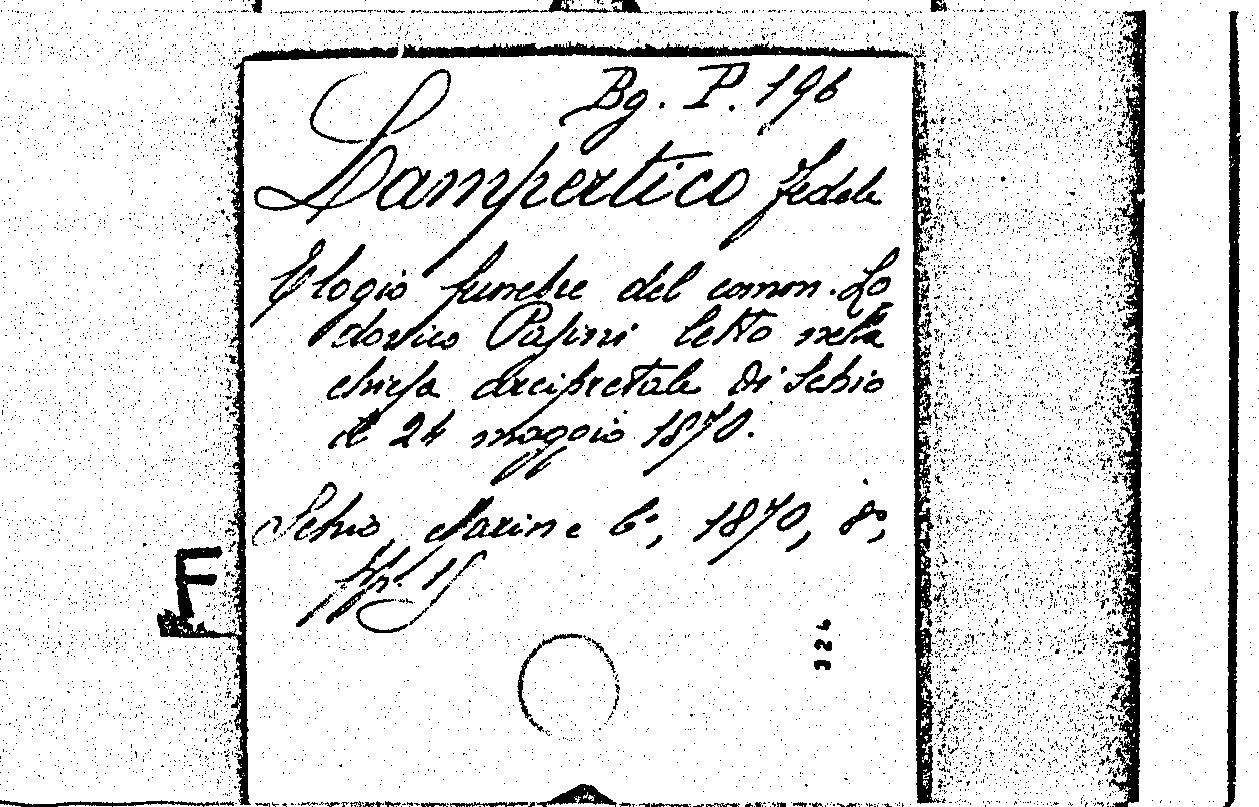 Bg. P. 196
Lampertico Fedele
Elogio funebre del comm. Lo
dovico Pasini letto nella
chiesa arcipretale di Schio
il 24 maggio 1870.
Schio, Marin e Co, 1870, 8o,
pp. 15
F
324